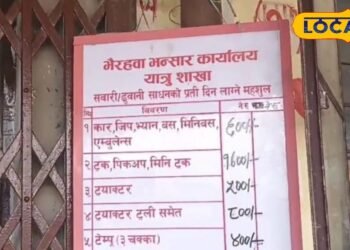 LOCAL
भैरहवा भन्सार कार्यालय
यात्रु शाखा
सवारी/ढुवानी साधनको प्रती दिन लाग्ने महशुल
विवरण
१ कार,जिप,भ्यान,बस,मिनिबस, ६००/-
एम्बुलेन्स
२ ट्रक,पिकअप,मिनि ट्रक १६००/-
३ ट्रयाक्टर ५००/-
४ ट्रयाक्टर ट्रली समेत ८००/-
५ टेम्पु (३ चक्का) ४००/-